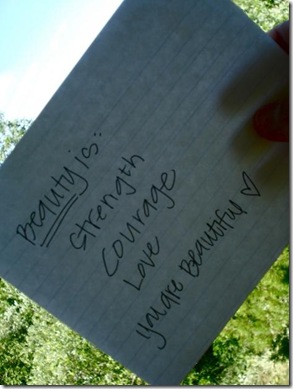 Beauty is:
Strength
Courage
Love
you are Beautiful ♡